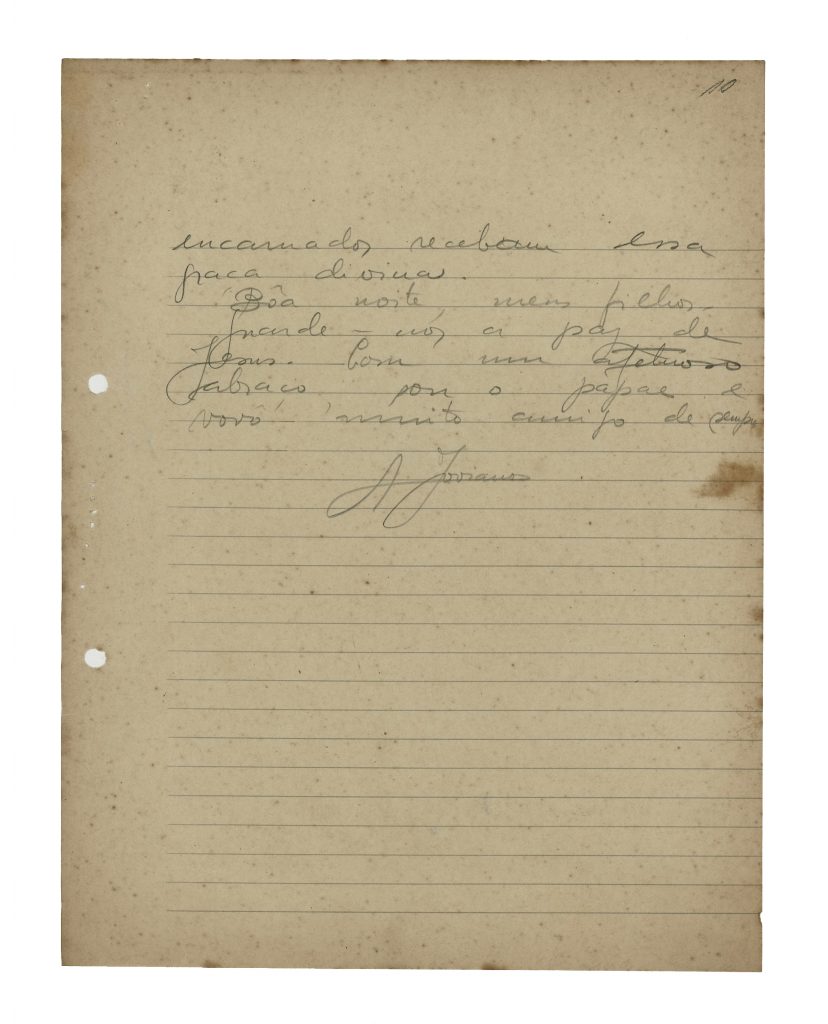 10
encarnados recebam essa
graça divina.
Bôa noite, meus filhos.
Guarde-nos a paz de
Jesus. Com um afetuoso
abraço, sou o papae e
vovô muito amigo de sempre
A. Joviano